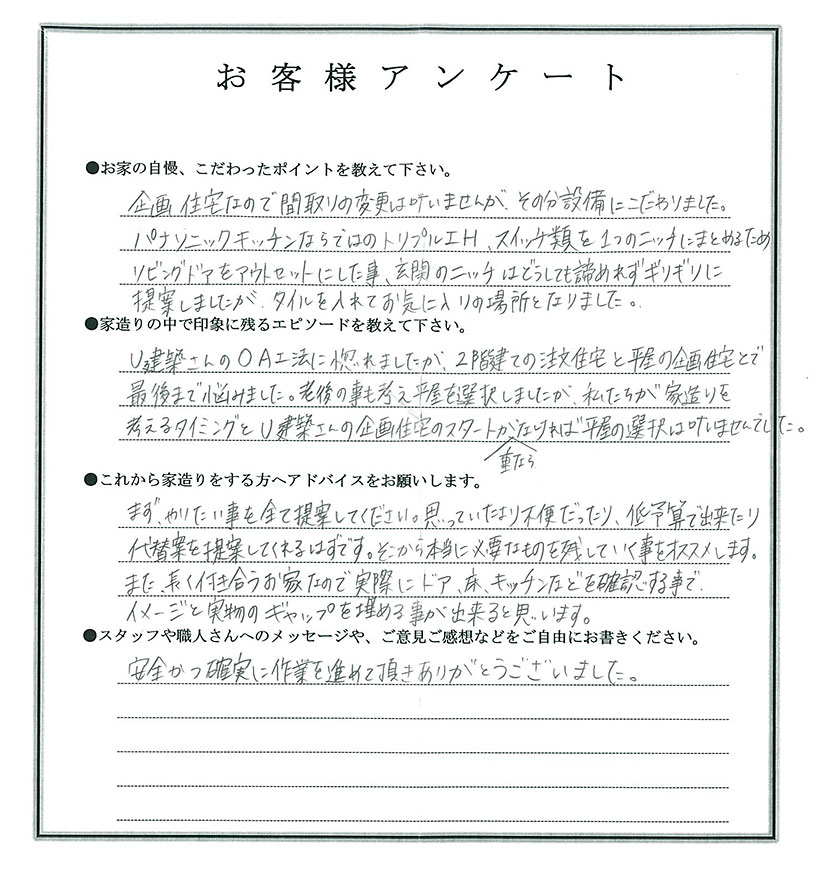 お客様アンケート
●お家の自慢、こだわったポイントを教えて下さい。
企画住宅なので間取りの変更は叶いませんが、その分設備にこだわりました。
パナソニックキッチンならではのトリプルIH、スイッチ類を1つのニッチにまとめるため
リビングドアをアウトセットにした事、玄関のニッチはどうしても諦めれずギリギリに
提案しましたが、タイルを入れてお気に入りの場所となりました。
●家造りの中で印象に残るエピソードを教えて下さい。
U建築さんのOA工法に惚れましたが、2階建ての注文住宅と平屋の企画住宅とで
最後まで悩みました。老後の事も考え平屋を選択しましたが、私たちが家造りを
考えるタイミングとU建築さんの企画住宅のスタートがなければ平屋の選択は叶いませんでした。
重なら
●これから家造りをする方へアドバイスをお願いします。
まず、やりたい事を全て提案してください。思っていたより不便だったり、低予算で出来たり
代替案を提案してくれるはずです。そこから本当に必要なものを残していく事をオススメします。
また、長く付き合うお家なので実際にドア、床、キッチンなどを確認する事で、
イメージと実物のギャップを埋める事が出来ると思います。
●スタッフや職人さんへのメッセージや、ご意見ご感想などをご自由にお書きください。
安全かつ確実に作業を進めて頂きありがとうございました。